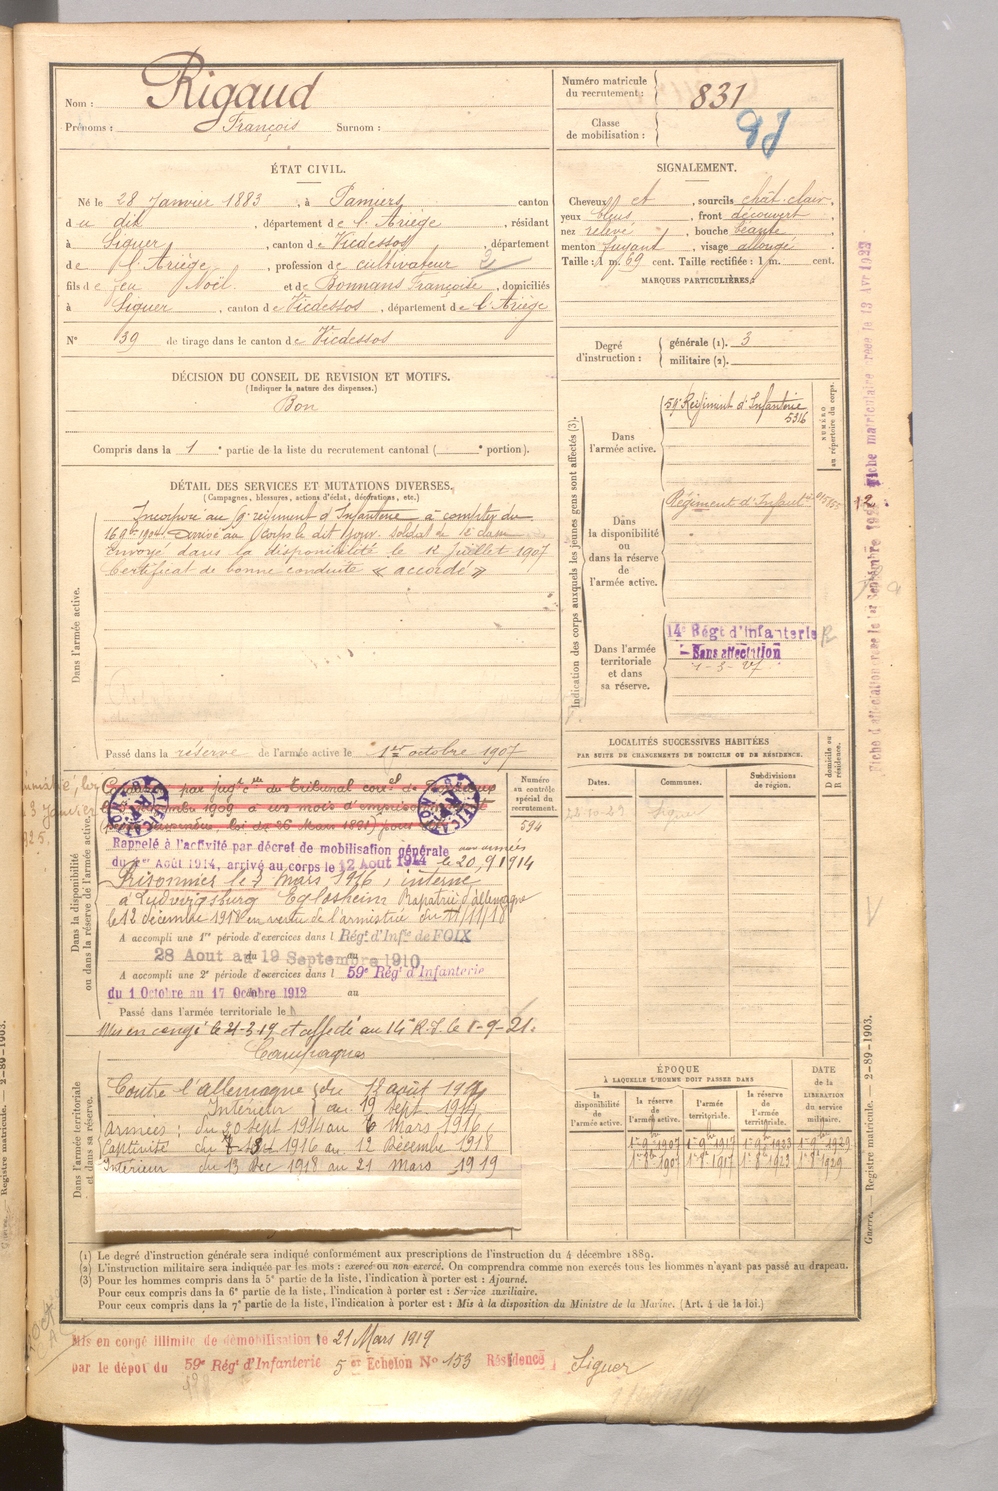 Nom : Rigaud
Prénoms : François Surnom :
Numéro matricule du recrutement : 831
Classe de mobilisation :
ÉTAT CIVIL.
Né le 28 Janvier 1883, à Pamiers canton
du dit, département de l'Ariège, résidant
à Siguer, canton de Vicdessos, département
de l'Ariège, profession de cultivateur
fils de feu Noël et de Bonnans Françoise, domiciliés
à Siguer, canton de Vicdessos, département de l'Ariège
N° 39 de tirage dans le canton de Vicdessos
SIGNALEMENT.
Cheveux et, sourcils chât clair,
yeux bleus, front découvert,
nez relevé, bouche béante,
menton fuyant, visage allongé.
Taille : 1 m. 69 cent. Taille rectifiée : 1 m. cent.
MARQUES PARTICULIÈRES :
Degré d'instruction : générale (1). 3
militaire (2).
DÉCISION DU CONSEIL DE REVISION ET MOTIFS.
(Indiquer la nature des dispenses.)
Bon
Compris dans la 1e partie de la liste du recrutement cantonal ( e portion).
DÉTAIL DES SERVICES ET MUTATIONS DIVERSES.
(Campagnes, blessures, actions d'éclat, décorations, etc.)
Dans l'armée active.
Incorporé au 9e régiment d'Infanterie à compter du
16 9bre 1904. Arrivé au corps le dit jour. soldat de 2e classe
Envoyé dans la disponibilité le 12 juillet 1907
Certificat de bonne conduite « accordé »
Passé dans la réserve de l'armée active le 1er octobre 1907
Indication des corps auxquels les jeunes gens sont affectés (3).
NUMÉRO au répertoire du corps.
Dans l'armée active.
59e Régiment d'Infanterie
5316
Dans la disponibilité ou dans la réserve de l'armée active.
Régiment d'Infant
Dans l'armée territoriale et dans sa réserve.
14e Régt d'Infanterie
Sans affectation
1-3-27
LOCALITÉS SUCCESSIVES HABITÉES
PAR SUITE DE CHANGEMENTS DE DOMICILE OU DE RÉSIDENCE.
Dates. Communes. Subdivisions de région. D domicile ou R résidence.
Siguer
Dans la disponibilité ou dans la réserve de l'armée active.
Numéro au contrôle spécial du recrutement.
594
Condamné par jugt du Tribunal corel de
1909 à un mois d'emprisonnement
loi du 26 Mars 1891) pour
Rappelé à l'activité par décret de mobilisation générale aux armées
du 1er Août 1914, arrivé au corps le 12 Août 1914 le 20/9/1914
Prisonnier le 3 mars 1916, interné
à Ludwigsburg Eglosheim Rapatrié d'Allemagne
le 12 décembre 1918 en vertu de l'armistice du 11/11/18
A accompli une 1re période d'exercices dans l Régt d'Infie de FOIX
28 Aout au 19 Septembre 1910.
A accompli une 2e période d'exercices dans l 59e Régt d'Infanterie
du 1 Octobre au 17 Octobre 1912 au
Passé dans l'armée territoriale le
Mis en congé le 21-3-19 et affecté au 14e R.I. le 1-9-21.
Campagnes
Dans l'armée territoriale et dans sa réserve.
Contre l'allemagne du 12 août 1914
Intérieur au 19 Sept. 1914
armées : du 20 Sept 1914 au 6 Mars 1916
Captivité du 1916 au 12 Décembre 1918
Intérieur du 13 Dec 1918 au 21 Mars 1919
ÉPOQUE
À LAQUELLE L'HOMME DOIT PASSER DANS
la disponibilité de l'armée active.
la réserve de l'armée active.
l'armée territoriale.
la réserve de l'armée territoriale.
DATE de la LIBÉRATION du service militaire.
1er 8bre 1907 1er 8bre 1917 1er 8bre 1923 1er 8bre 1929
(1) Le degré d'instruction générale sera indiqué conformément aux prescriptions de l'instruction du 4 décembre 1889.
(2) L'instruction militaire sera indiquée par les mots : exercé ou non exercé. On comprendra comme non exercés tous les hommes n'ayant pas passé au drapeau.
(3) Pour les hommes compris dans la 5e partie de la liste, l'indication à porter est : Ajourné.
Pour ceux compris dans la 6e partie de la liste, l'indication à porter est : Service auxiliaire.
Pour ceux compris dans la 7e partie de la liste, l'indication à porter est : Mis à la disposition du Ministre de la Marine. (Art. 4 de la loi.)
Mis en congé illimité de démobilisation le 21 Mars 1919
par le dépôt du 59e Régt d'Infanterie 5 er Echelon N° 153 Résidence Siguer
Guerre. — Registre matricule. — 2-89-1903.
Registre matricule. — 2-89-1903.